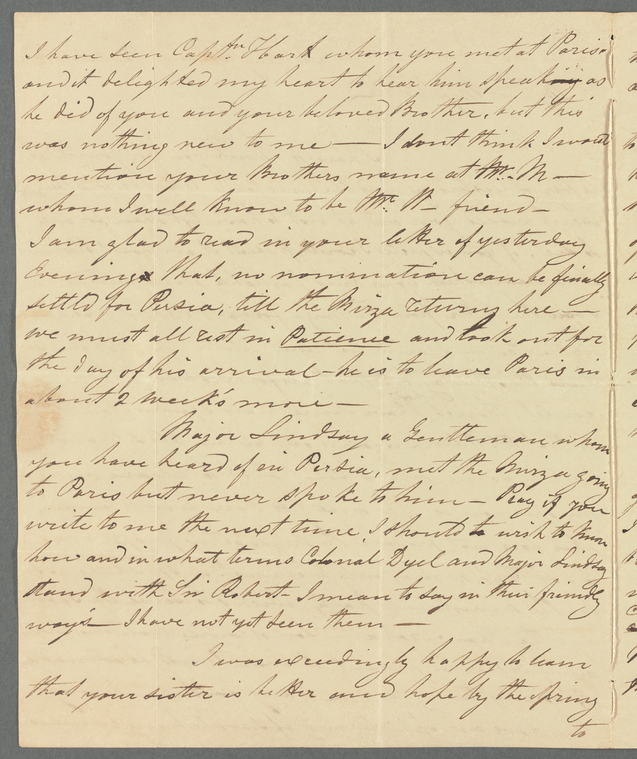 I have seen Captn. Hart whom you met at Paris.
and it delighted my heart to hear him speaking as
he did of you and your beloved Brother, but this
was nothing new to me — I dont think I would
mention your Brothers name at Mr. M —
whom I well know to be Mr. W– friend —
I am glad to read in your letter of yesterday
Evening that, no nomination can be finally
settld for Persia, till the Mirza returns here —
we must all rest in Patience and look out for
the day of his arrival – he is to leave Paris in
about 2 week's more —
Major Lindsay a Gentleman whom
you have heard of in Persia, met the Mirza going
to Paris but never spoke to him — Pray if you
write to me the next time I should to wish to know
how and in what terms Colonal Dyel and Major Lindsay
stand with Sir Robert – I mean to say in their friendly
way's — I have not yet seen them —
I was exceedingly happy to learn
that your sister is better and hope by the spring
to